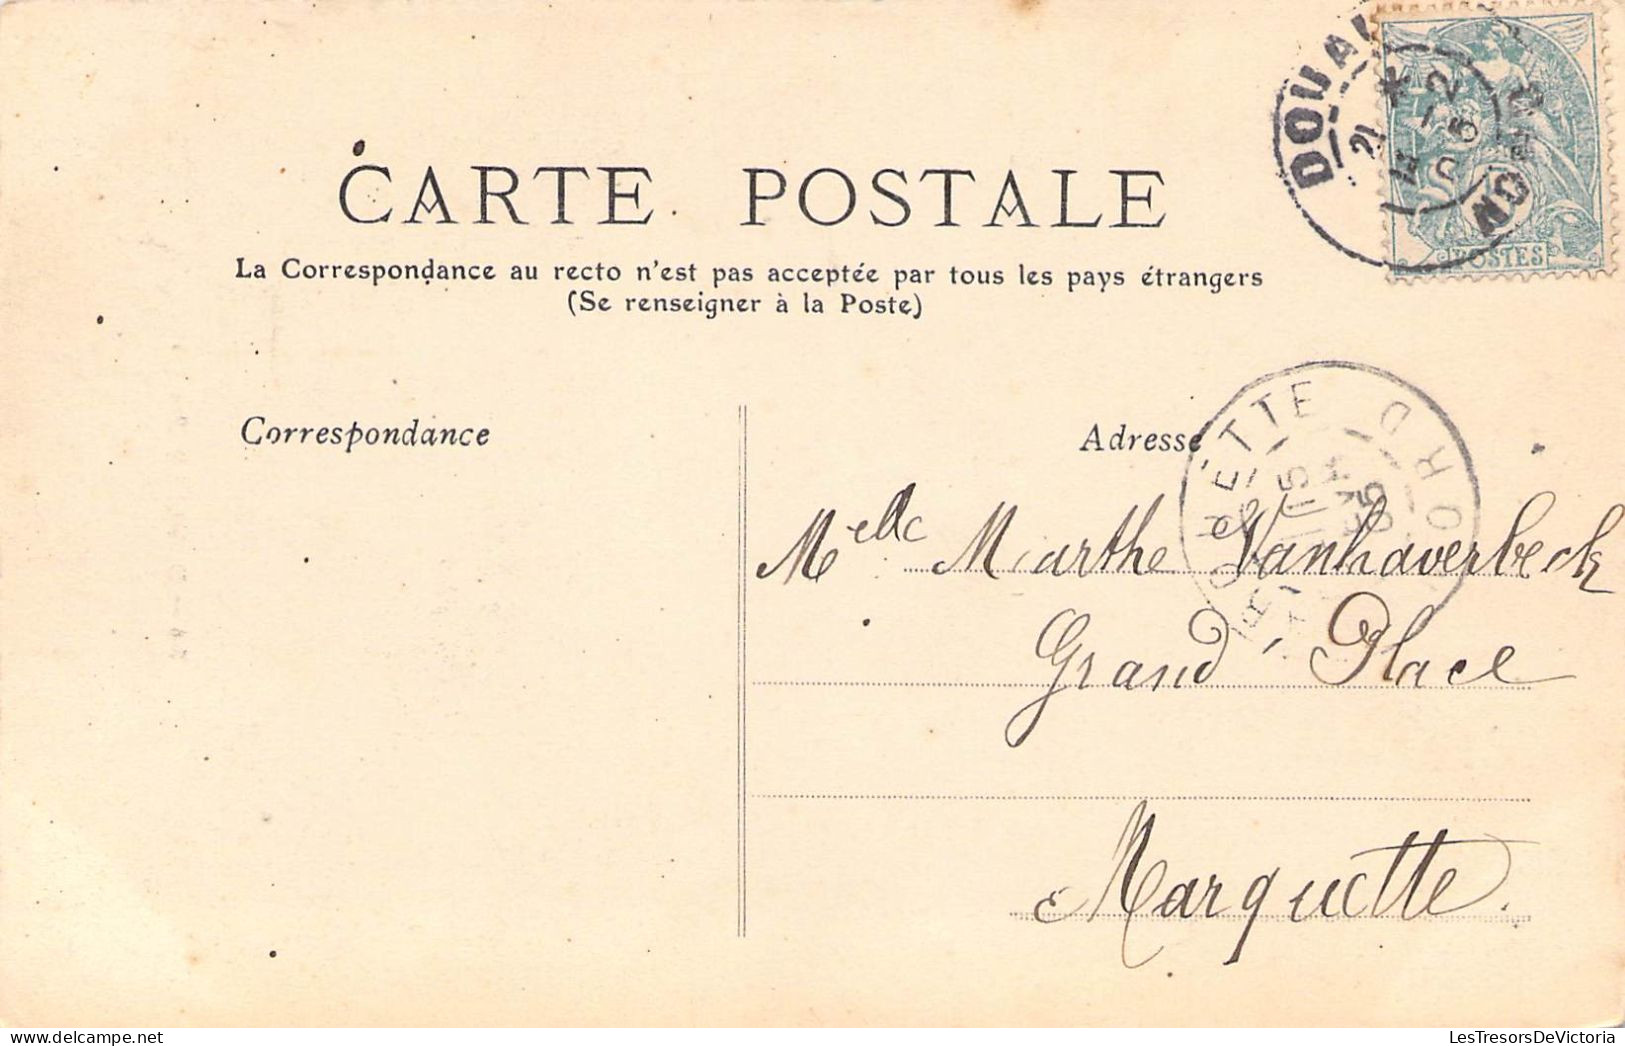 CARTE POSTALE
La Correspondance au recto n'est pas acceptée par tous les pays étrangers
(Se renseigner à la Poste)
DOUAI
NORD
21
POSTES
Correspondance
Adresse
NORD
05
Melle Marthe Vanhaverbeck
Grand' Place
Marquette
LesTresorsDeVictoria.com